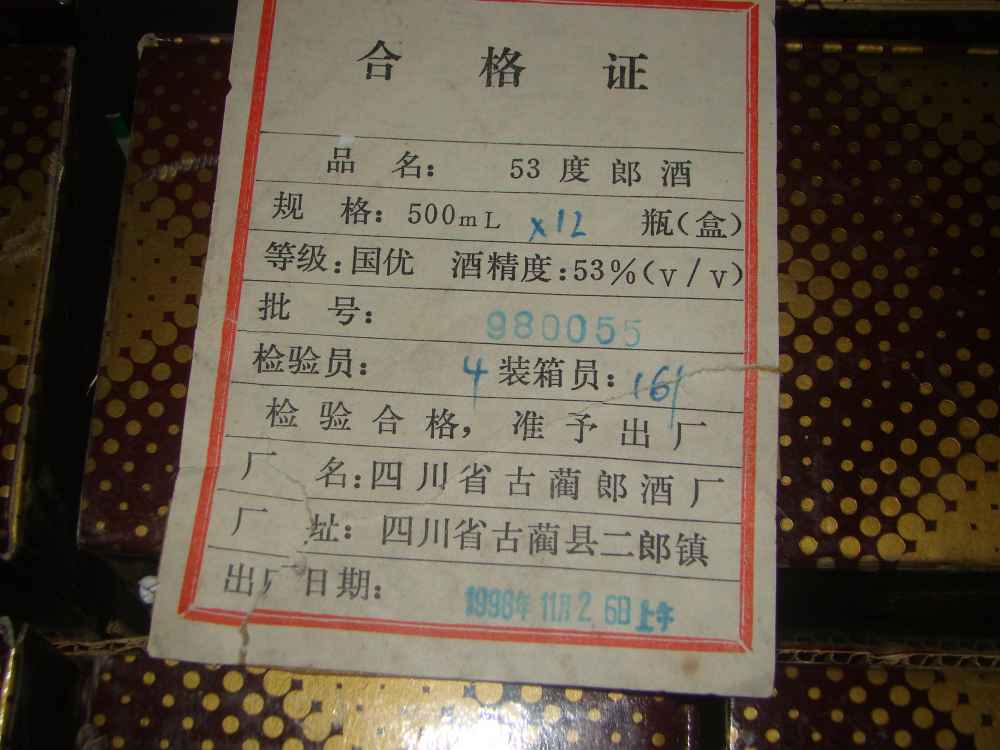 合格证
品名: 53度郎酒
规格: 500mL x12 瓶(盒)
等级:国优 酒精度:53%(v/v)
批号: 980055
检验员: 4 装箱员: 161
检验合格,准予出厂
厂名:四川省古蔺郎酒厂
厂址: 四川省古蔺县二郎镇
出厂日期: 1998年11月26日上午